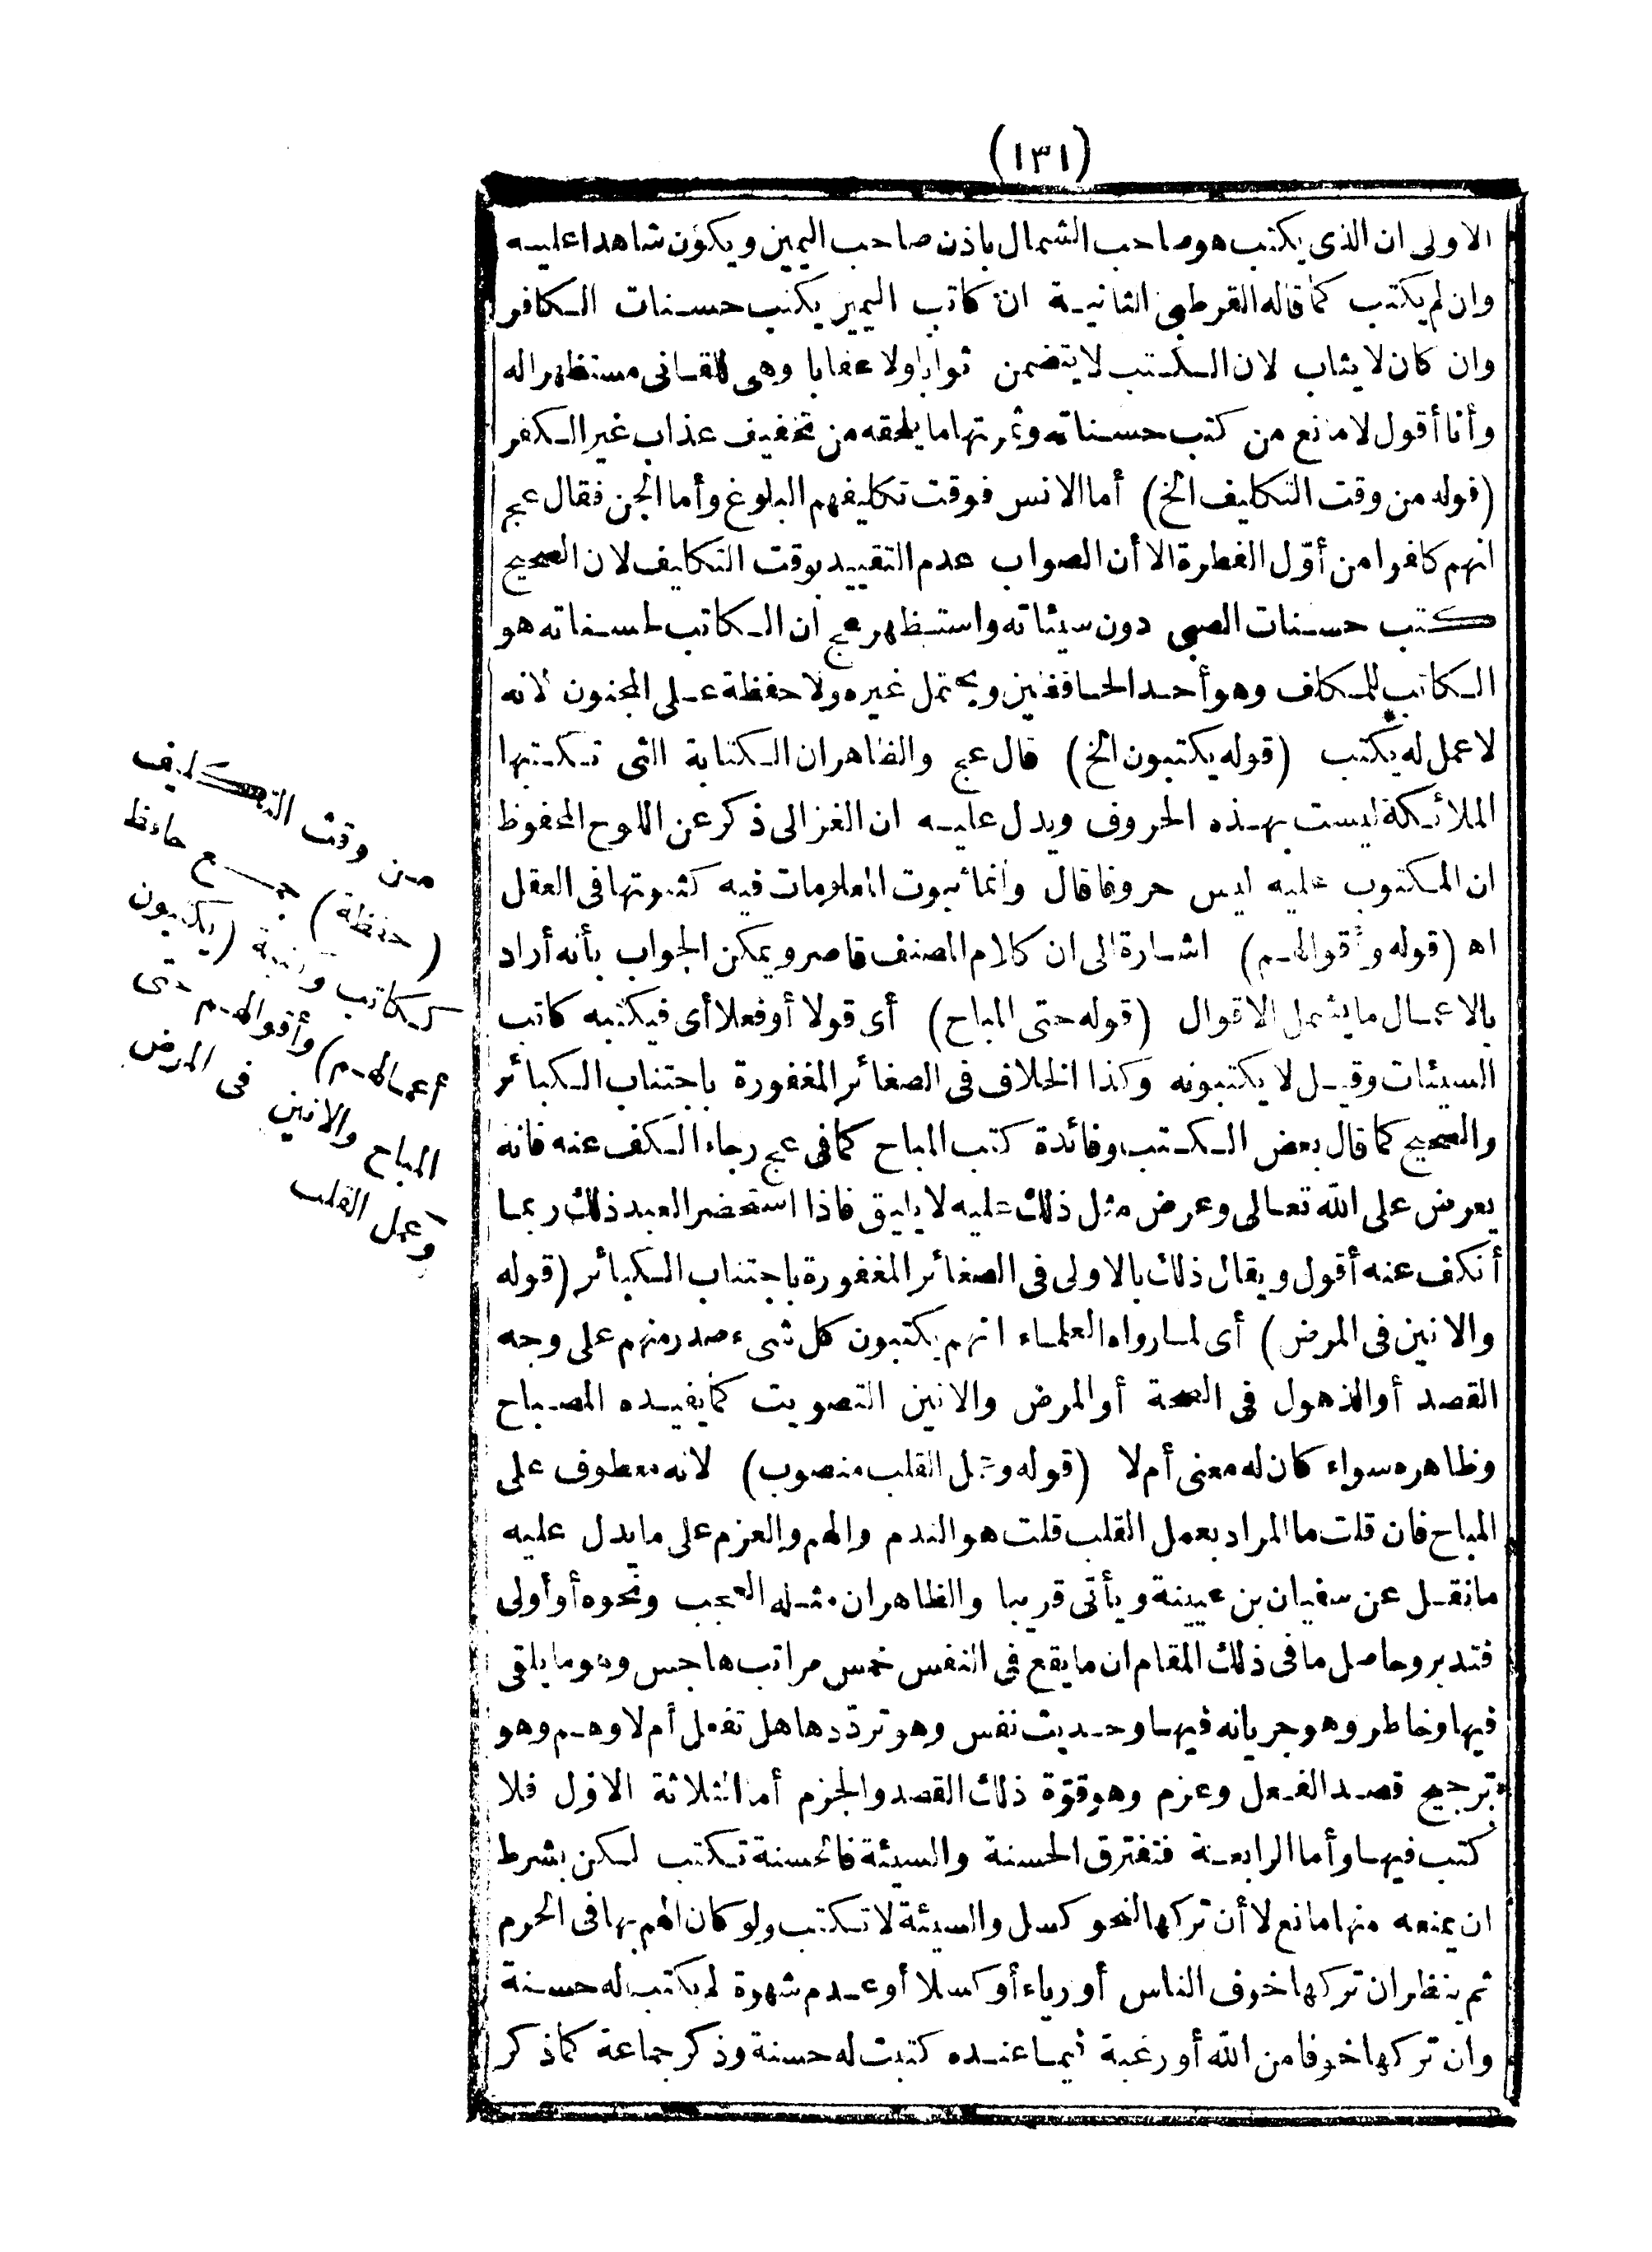 (١٣١)
الاولى ان الذى يكتب هو صاحب الشمال باذن صاحب اليمين ويكون شاهدا عليه
وان لم يكتب كما قاله القرطبى الثانية ان كاتب اليمين يكتب حسنات الكافر
وان كان لا يثاب لان الكتب لا يتضمن ثوابا ولا عقابا وهى للقانى مستظهرا له
وأنا أقول لا مانع من كتب حسناته وثمرتها ما يلحقه من تخفيف عذاب غير الكفر
(قوله من وقت التكليف الخ) أما الانس فوقت تكليفهم البلوغ وأما الجن فقال عج
انهم كلفوا من أوّل الفطرة الا أن الصواب عدم التقييد بوقت التكليف لان الصحيح
كتب حسنات الصبى دون سيئاته واستظهر عج ان الكاتب لحسناته هو
الكاتب للمكلف وهو أحد الحافظين ويحتمل غيره ولا حفظة على المجنون لانه
لا عمل له يكتب (قوله يكتبون الخ) قال عج والظاهر ان الكتابة التى تكتبها
الملائكة ليست بهذه الحروف ويدل عليه ان الغزالى ذكر عن اللوح المحفوظ
ان المكتوب عليه ليس حروفا قال وانما ثبوت المعلومات فيه كثبوتها فى العقل
اه (قوله وأقوالهم) اشارة الى ان كلام المصنف قاصر ويمكن الجواب بأنه أراد
بالاعمال ما يشمل الاقوال (قوله حتى المباح) أى قولا أو فعلا أى فيكتبه كاتب
السيئات وقيل لا يكتبونه وكذا الخلاف فى الصغائر المغفورة باجتناب الكبائر
والصحيح كما قال بعض الكتب وفائدة كتب المباح كما فى عج رجاء الكف عنه فانه
يعرض على الله تعالى وعرض مثل ذلك عليه لا يليق فاذا استحضر العبد ذلك ربما
أنكف عنه أقول ويقال ذلك بالاولى فى الصغائر المغفورة باجتناب الكبائر (قوله
والانين فى المرض) أى لما رواه العلماء انهم يكتبون كل شىء صدر منهم على وجه
القصد أو الذهول فى الصحة أو المرض والانين التصويت كما يفيده المصباح
وظاهره سواء كان له معنى أم لا (قوله وعمل القلب منصوب) لانه معطوف على
المباح فان قلت ما المراد بعمل القلب قلت هو الندم والهم والعزم على ما يدل عليه
ما نقل عن سفيان بن عيينة ويأتى قريبا والظاهر ان مثله العجب ونحوه أو أولى
فتدبر وحاصل ما فى ذلك المقام ان ما يقع فى النفس خمس مراتب هاجس وهو ما يلقى
فيها وخاطر وهو جريانه فيها وحديث نفس وهو تردّدها هل تفعل أم لا وهم وهو
ترجيح قصد الفعل وعزم وهو قوّة ذلك القصد والجزم أما الثلاثة الاول فلا
كتب فيها وأما الرابعة فتفترق الحسنة والسيئة فالحسنة تكتب لكن بشرط
ان يمنعه منها مانع لا أن تركها لنحو كسل والسيئة لا تكتب ولو كان الهم بها فى الحرم
ثم ينظر ان تركها خوف الناس أو رياء أو كسلا أو عدم شهوة لم يكتب له حسنة
وان تركها خوفا من الله أو رغبة فيما عنده كتبت له حسنة وذكر جماعة كما ذكر
من وقت التكليف
(حفظة) جمع حافظ
ككاتب وكتبة (يكتبون
أعمالهم) وأقوالهم حتى
المباح والانين فى المرض
وعمل القلب